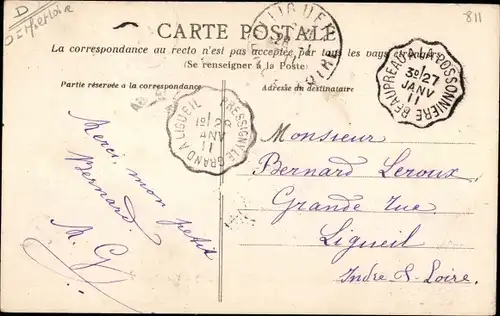 D
811
CARTE POSTALE
La correspondance au recto n'est pas acceptée par tous les pays étrangers
(Se renseigner à la Poste)
Partie réservée a la correspondance
Adresse du destinataire
BEAUPREAU A LA POSSONNIERE
1
3º 27
JANV
11
LIGUEIL
PRESSIGNY LE GRAND A LIGUEIL
1
1º 26
JANV
11
Merci, mon petit
Bernard.
M. G
Monsieur
Bernard Leroux
Grande Rue
Ligueil
Indre & Loire.